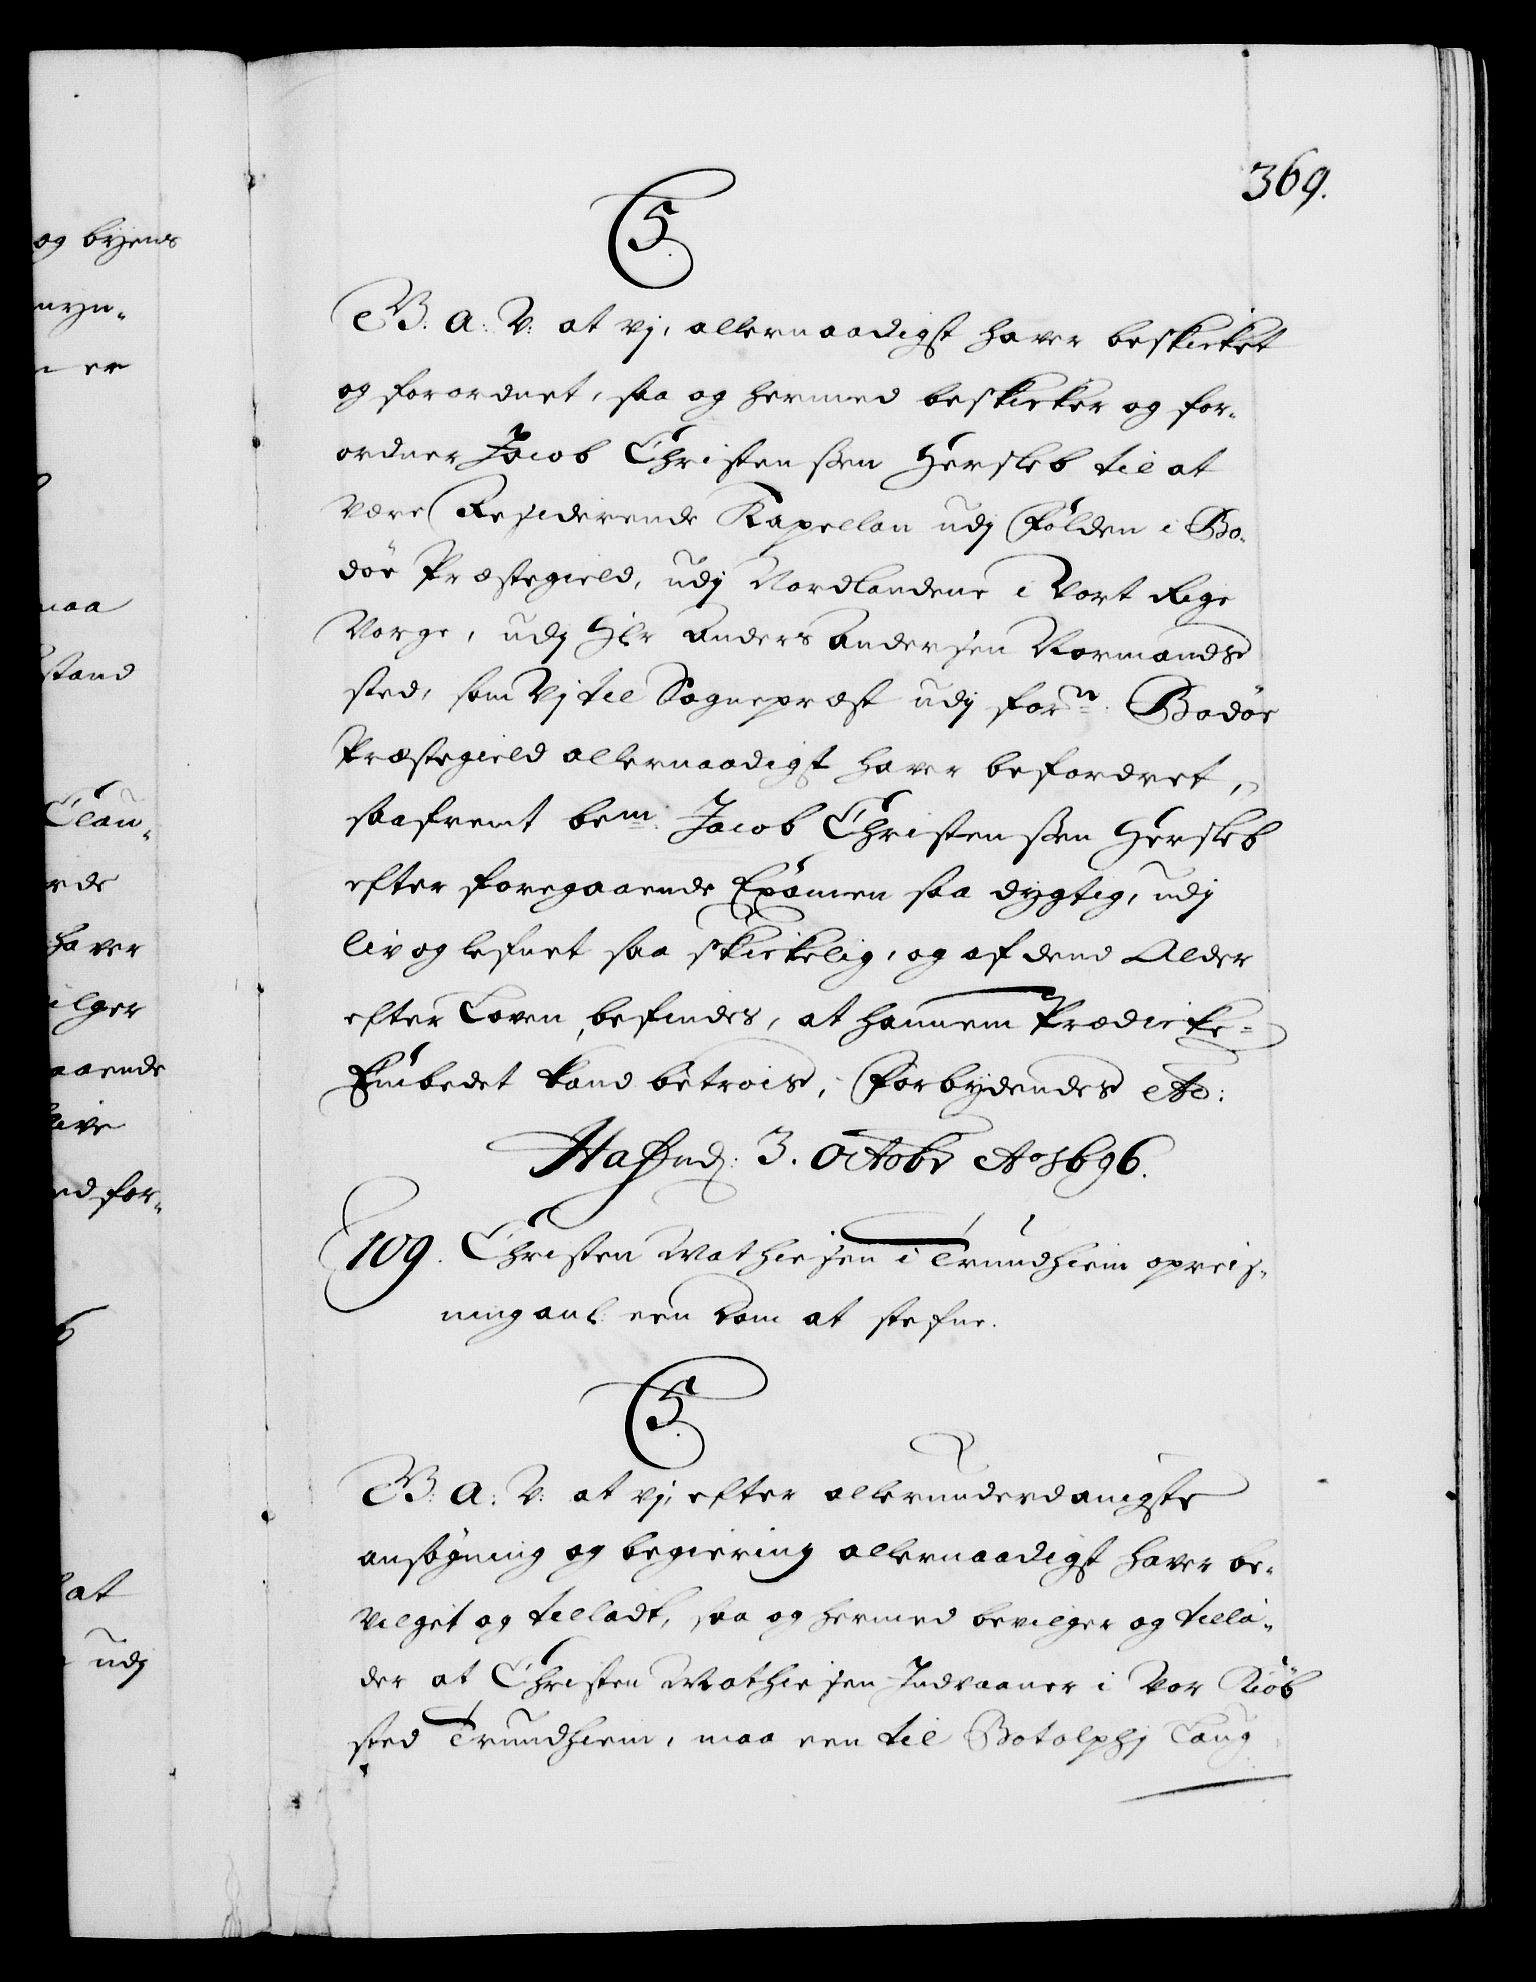 369.
C5.
G. A. V: at vj, allernaadigst haver beskicket
og forordnet, saa og hermed beskicker og for-
ordner Jacob Christenssen Hersleb til at
være Residerende Kapellan udj Folden i Bo-
döe Præstegield, udj Nordlandene i Vort Rige
Norge, udj Hr Anders Andersen Normands
sted, som Vj til Sognepræst udj forn. Bodöe
Præstegield allernaadigst haver befordret,
saafremt bem. Jacob Christenssen Hersleb
efter foregaaende Examen saa dygtig, udj
liv og lefnet saa skickelig, og af dend Alder
efter Loven, befindes, at hannem Prædicke-
Embedet kand betrois, Forbydendes etc:
Hafnd: 3. Octobr Ao 1696.
109. Christen Mathiesen i Trundhiem opreis-
ning anl: een Dom at stefne.
C5.
G. A. V: at vj, efter allerunderdanigste
ansögning og begiering allernaadigst haver be-
vilget og tilladt, saa og hermed bevilger og tilla-
der at Christen Mathiesen Indvaaner i Vor Kiöb
sted Trundhiem, maa een til Botolphj Laug
og byens
er
maa
stand
Clau-
haver
aaende
ed for-
at
udj